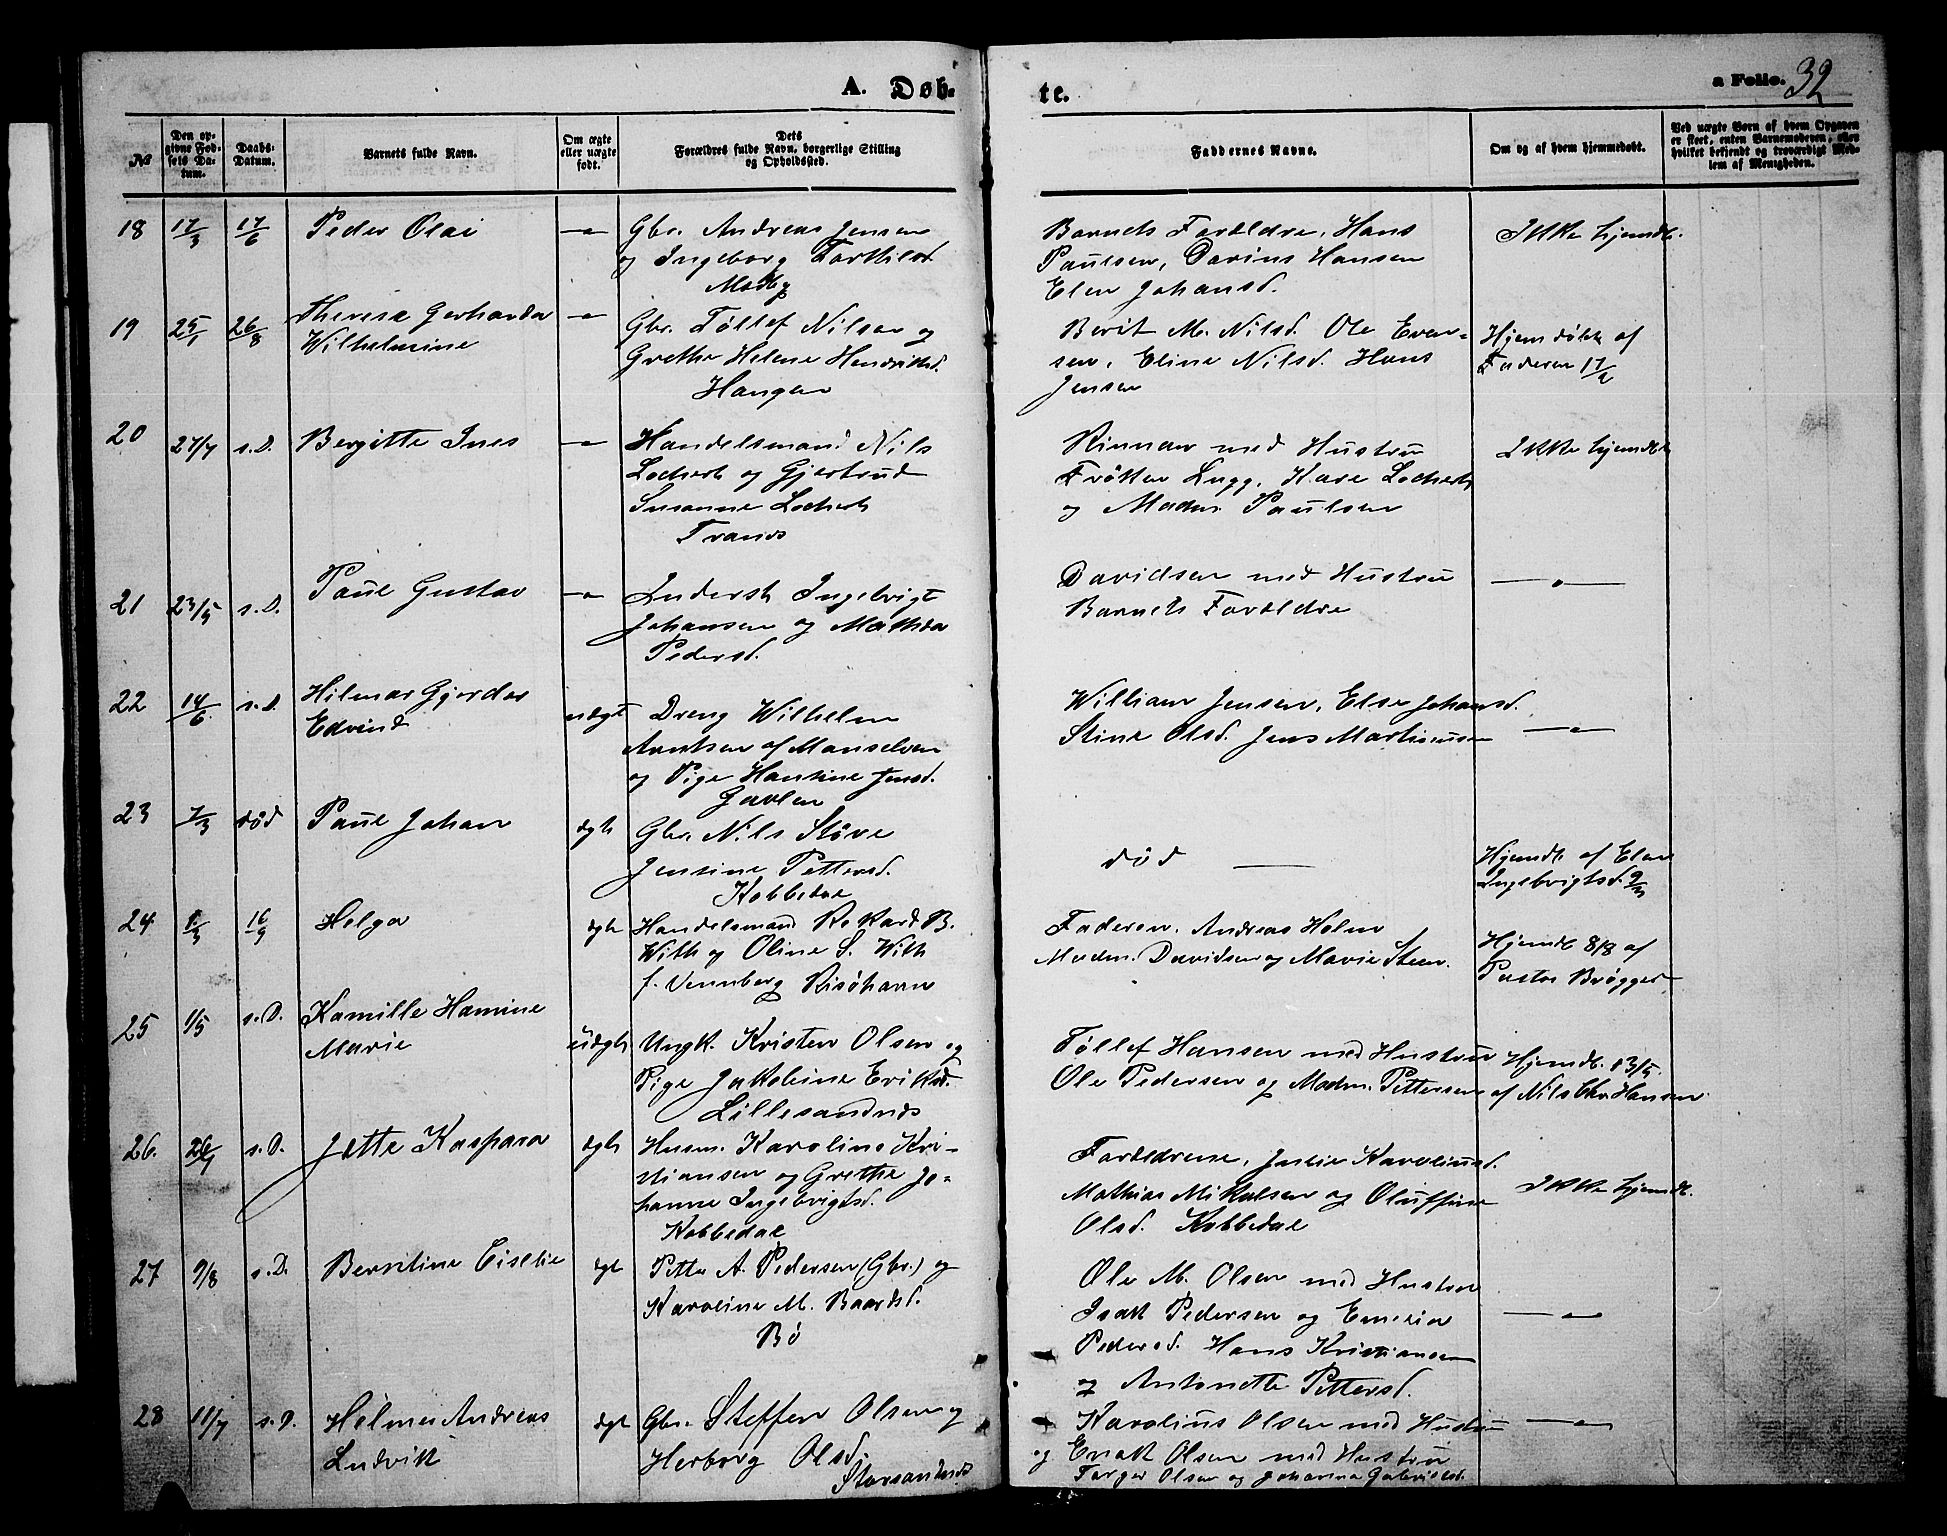 A. Døb-
te.
a Folio. 32
No
Den op-
givne Fød-
sels Da-
tum.
Daabs-
Datum.
Barnets fulde Navn.
Om ægte
eller uægte
født.
Dets
Forældres fulde Navn, borgerlige Stilling
og Opholdssted.
Faddernes Navne.
Om og af hvem hjemmedøbt.
Ved uægte Børn af hvem Opgaven
er skeet, enten Barnemoderen, eller
hvilket bekjendt og troværdigt Med-
lem af Menigheden.
18 17/3 17/6 Peder Olai —"— Gbr. Andreas Jensen
og Ingeborg Torkilsd.
Melby
Barnets Forældre, Hans
Paulsen, Darius Hansen
Elen Johansd.
Ikke hjemdb.
19 25/1 26/8 Therese Gerharda
Wilhelmine
—"— Gbr. Tøllef Nilsen og
Grethe Helene Hendriksd.
Haugen
Berit M. Nilsd. Ole Even-
sen, Eline Nilsd. Hans
Jensen
Hjemdøbt af
Faderen 17/2
20 27/7 s.D. Bergitte Ines —"— Handelsmand Nils
Lochert og Gjertrud
Susanne Lochert
Tranes
Rinnan med Hustru
Frøken Lugg, Kare Lochert
og Madm. Paulsen
Ikke hjemdb
21 23/5 s.D. Paul Gustav —"— Inderst Ingebrigt
Johansen og Mathea
Pedersd.
Davidsen med Hustru
Barnets Forældre
—"—
22 14/6 s.D. Hilmar Gjerder
Edvind
uægt Dreng Wilhelm
Arntsen af Manselven
og Pige Hansine Jensd.
Gavlen
William Jensen, Else Johansd.
Stine Olsd. Jens Martinusen
—"—
23 7/3 død Paul Johan ægte Gbr. Nils Støve
Jensine Pettersd.
Kobbedal
død —
Hjemdb af Elen
Ingebrigtsd. 9/3
24 1/3 16/9 Helga ægte Handelsmand Rikard B.
With og Oline S. With
f. Vennberg Risøhavn
Faderen, Andreas Holm
Madm. Davidsen og Marie Steen.
Hjemdb 8/8 af
Pastor Brøgger
25 1/5 s.D. Kamille Hamine
Marie
uægte Ungk. Kristen Olsen og
Pige Jakobine Eriksd.
Lillesandnes
Tøllef Hansen med Hustru
Ole Pedersen og Madm. Pettersen
Hjemdb. 13/5.
af Nils Chr Hansen
26. 26/7 s.D. Jette Kaspara ægte Husm. Karolius Kri-
stiansen og Grethe Jo-
hanne Ingebrigtsd.
Kobbedal
Forældrene, Julie Karoliusd.
Mathias Mikalsen og Oluffine
Olsd. Kobbedal
Ikke hjemdb.
27 9/8 s.D. Berntine Giselie ægt Petter A. Pedersen (Gbr.) og
Karoline M. Baardsd.
Bø
Ole M. Olsen med Hustru
Isak Pedersen og Emilia
Pedersd. Hans Kristiansen
og Antonette Pettersd.
—"—
28 11/7 s.D. Helmer Andreas
Ludvik
ægt Gbr. Steffen Olsen og
Herborg Olsd.
Storsandnes
Karolius Olsen med Hustru
og Enok Olsen med Hustru
Torger Olsen og Johanna Gabrielsd.
—"—